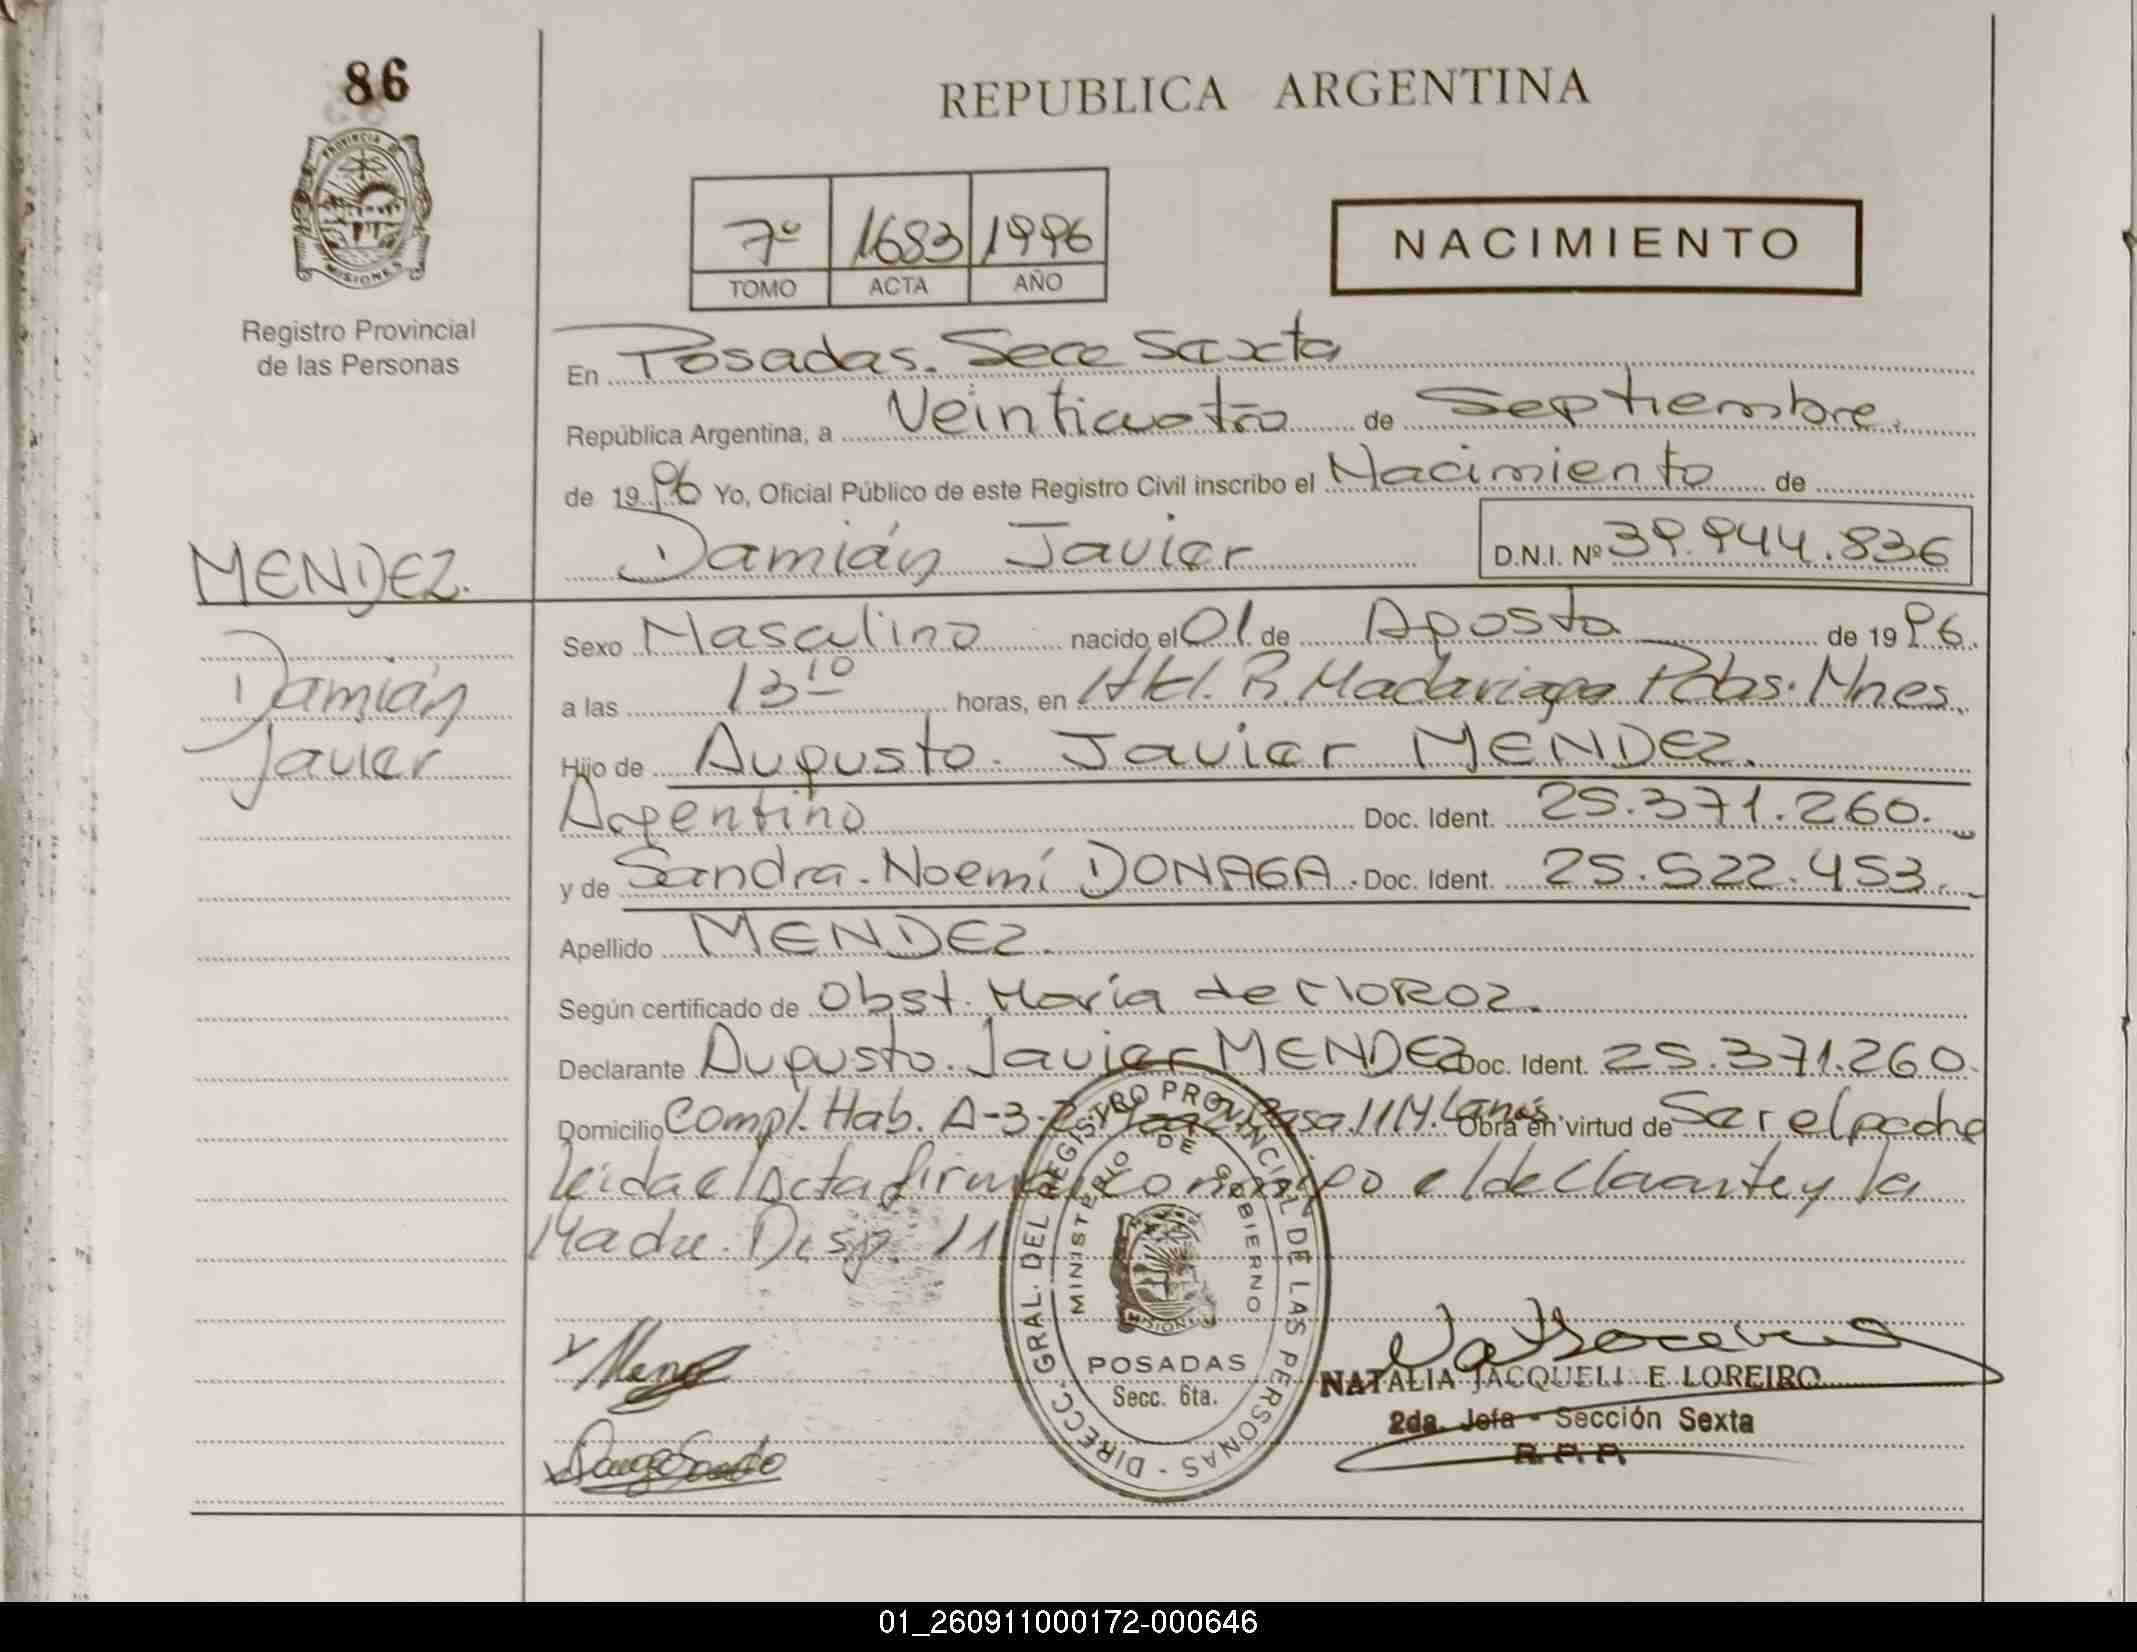 86
PROVINCIA DE
MISIONES
Registro Provincial
de las Personas
REPUBLICA ARGENTINA
7º 1683 1996
TOMO ACTA AÑO
NACIMIENTO
En Posadas. Secc Sexta
República Argentina, a Veinticuatro de Septiembre.
de 1996 Yo, Oficial Público de este Registro Civil inscribo el Nacimiento de
Damián Javier D.N.I. Nº 39.944.836
MENDEZ.
Damián
Javier
Sexo Masculino nacido el 01 de Agosto de 1996.
a las 13 10 horas, en Htal. R. Madariaga Pdas. Mnes.
Hijo de Augusto. Javier MENDEZ.
Argentino Doc. Ident. 25.371.260.
y de Sandra. Noemí DONAGA. Doc. Ident. 25.522.453.
Apellido MENDEZ.
Según certificado de Obst. María de MOROZ.
Declarante Augusto. Javier MENDEZ Doc. Ident. 25.371.260.
Domicilio Compl. Hab. A-3-2 casa 11 M. Lanús. Obra en virtud de Ser el padre
leida el Acta firman conmigo el declarante y la
Madre. Disp. 11
DIRECC. GRAL. DEL REGISTRO PROVINCIAL DE LAS PERSONAS -
MINISTERIO DE GOBIERNO
MISIONES
POSADAS
Secc. 6ta.
NATALIA JACQUELI E LOREIRO
2da. Jefa - Sección Sexta
R.P.P.
01_260911000172-000646